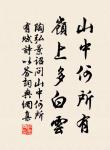 山中何所有
嶺上多白雲
陶弘景詔問山中何所
有賦詩以答詞典網